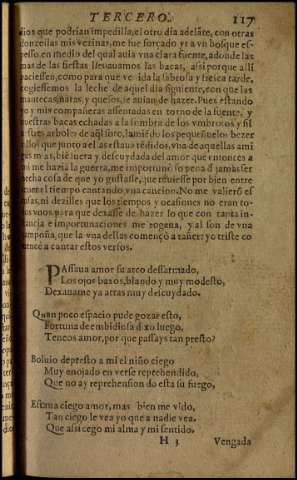 TERCERO. 117
dios que podrian impedilla, el otro dia adelãte, con otras
donzellas mis vezinas, me fue forçado yr a vn bosque es-
pesso, en medio del qual auia vna clara fuente, adonde las
mas de las fiestas lleuauamos las bacas, assi porque alli
paciessen, como para que venida la sabrosa y fresca tarde,
cogiessemos la leche de aquel dia siguiente, con que las
mantecas, natas, y quesos, se auian de hazer. Pues estando
yo y mis compañeras assentadas en torno de la fuente, y
nuestras bacas echadas a la sombra de los vmbrosos y sil
uestres arboles de aq̃l soto, lamiẽdo los pequeñuelos bezer
rillos que junto a ellas estauã tẽdidos, vna de aquellas ami
gas mias, biẽ suera y descuydada del amor que entonces a
mi me hazia la guerra, me importunò so pena de jamas ser
hecha cosa de que yo gustasse, que tuuiesse por bien entre
tener el tiempo cantando vna cancion. No me valierõ es
cusas, ni dezilles que los tiempos y ocasiones no eran to-
dos vnos, para que dexasse de hazer lo que con tanta in-
stancia e importunaciones me rogauã, y al son de vna
çampoña, que la vna dellas començò a tañer: yo triste co
mencè a cantar estos versos.
PAssaua amor su arco dessarmado,
Los ojos baxos, blando y muy modesto,
Dexauame ya atras muy descuydado.
Quan poco espacio pude gozar esto,
Fortuna de embidiosa dixo luego,
Teneos amor, por que passays tan presto?
Boluio depresto a mi el niño ciego
Muy enojado en verse reprehendido,
Que no ay reprehension do esta su fuego,
Estaua ciego amor, mas bien me vido,
Tan ciego le vea yo que a nadie vea.
Que assi cego mi alma y mi sentido.
H 3 Vengada